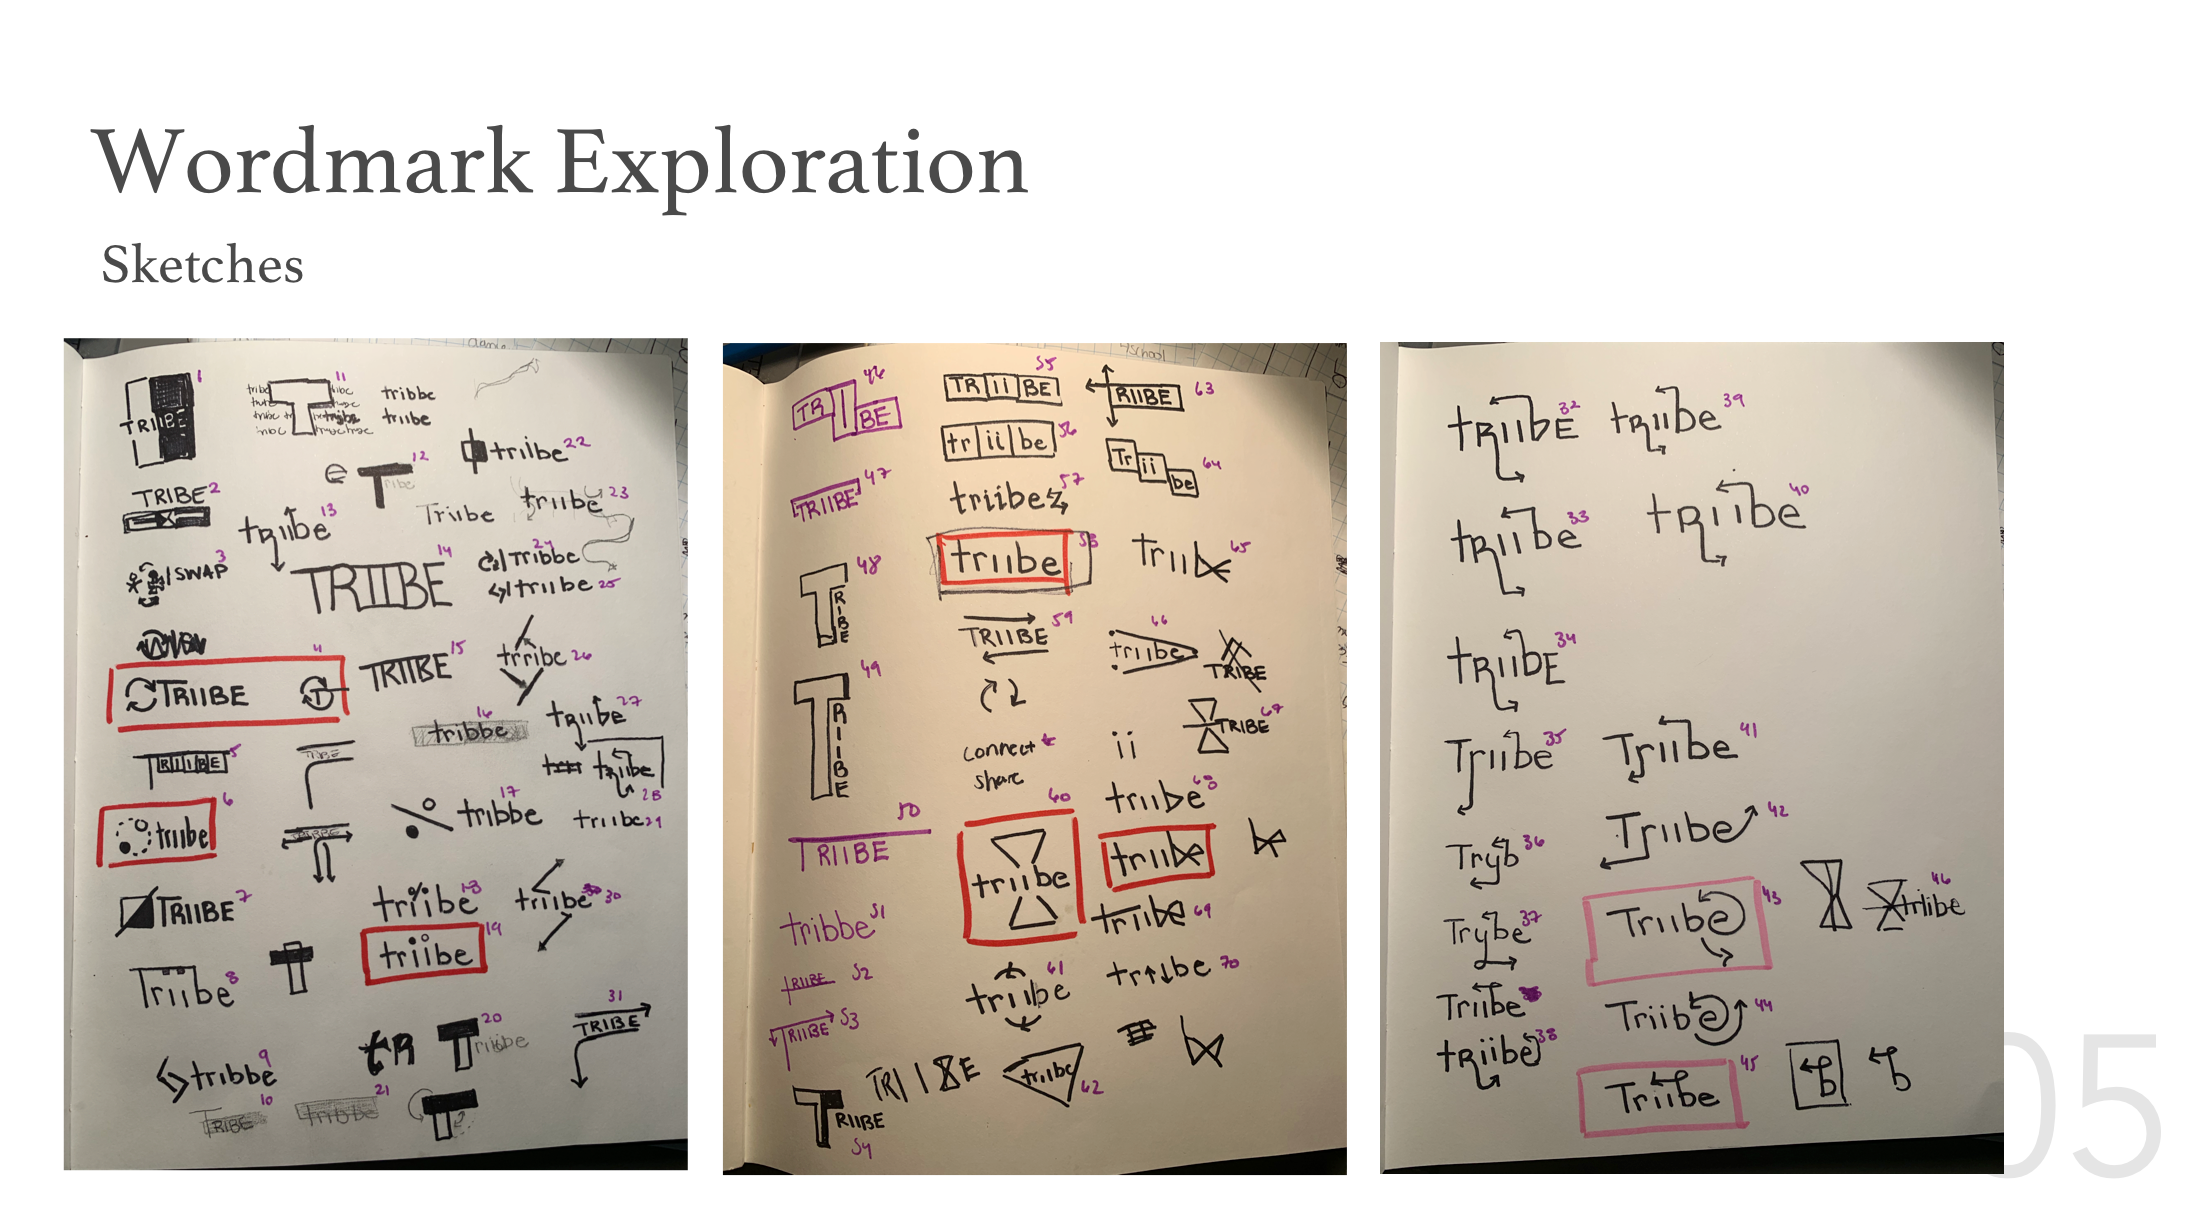 Wordmark Exploration
Sketches
1
TRIIBE
11
tribbe
triibe
TRIBE 2
12
T
22
triibe
13
triibe
Triibe
triibe 23
3
SWAP
14
TRIIBE
24
Tribbe
triibe 25
4
TRIIBE
T
TRIIBE 15
triibe 26
16
tribbe
27
triibe
5
TRIIBE
triibe
28
6
triibe
17
tribbe
triibe 29
7
TRIIBE
18
triibe
triibe 30
19
triibe
8
Triibe
tR
20
T
31
TRIBE
9
tribbe
10
TRIBE
21
tribbe
46
TR I BE
47
TRIIBE
48
TRIBE
49
TRIIBE
50
TRIIBE
51
tribbe
52
TRIIBE
53
TRIIBE
TRIIBE
54
55
TR ii BE
56
tr ii be
57
triibe
58
triibe
59
TRIIBE
connect
share
60
triibe
61
triibe
TRIIBE
triibe
62
school
63
RIIBE
64
Tr ii be
65
triib
66
triibe
TRIBE
67
TRIBE
ii
68
triibe
triibe
triibe 69
tr be 70
triibe 32
triibe 39
triibe 33
triibe 40
triibe 34
Triibe 35
Triibe 41
Tryb 36
Triibe 42
Trybe 37
Triibe 43
46
triibe
Triibe
triibe 38
Triibe 44
Triibe 45
b
b
05